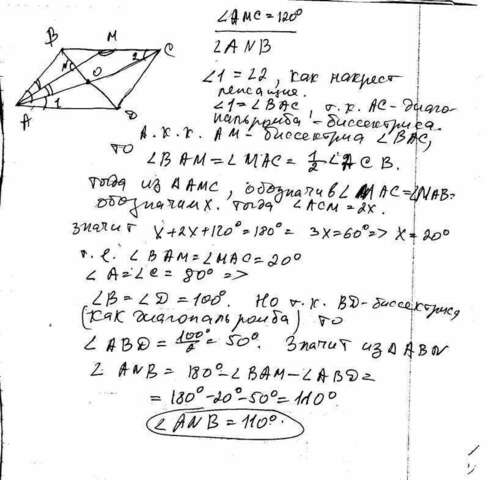 B
M
C
N
O
2
A
1
D
∠AMC = 120°
∠ANB
∠1 = ∠2, как накрест
лежащие.
∠1 = ∠BAC, т.к. AC - диаго
наль ромба - биссектриса.
А т.к. AM - биссектриса ∠BAC,
то
∠BAM = ∠MAC = 1/2 ∠ACB.
тогда из ΔAMC, обозначив ∠MAC = ∠NAB =
обозначим x. тогда ∠ACM = 2x.
значит x + 2x + 120° = 180° = 3x = 60° => x = 20°
т.е. ∠BAM = ∠MAC = 20°
∠A = ∠C = 80° =>
∠B = ∠D = 100°. Но т.к. BD - биссектриса
(как диагональ ромба) то
∠ABD = 100°/2 = 50°. Значит из ΔABN
∠ANB = 180° - ∠BAM - ∠ABD =
= 180° - 20° - 50° = 110°
∠ANB = 110°.